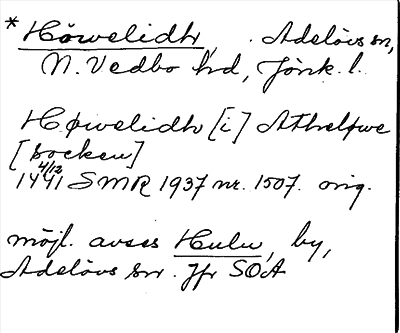 *Höwelidh, Adelövs sn,
N. Vedbo hd, Jönk. l.
Høwelidh [i] Atheløwe
[socken]
4/12
1441 SMR 1937 nr. 1507. orig.
möjl. avses Hulu, by,
Adelövs sn. Jfr SOÄ